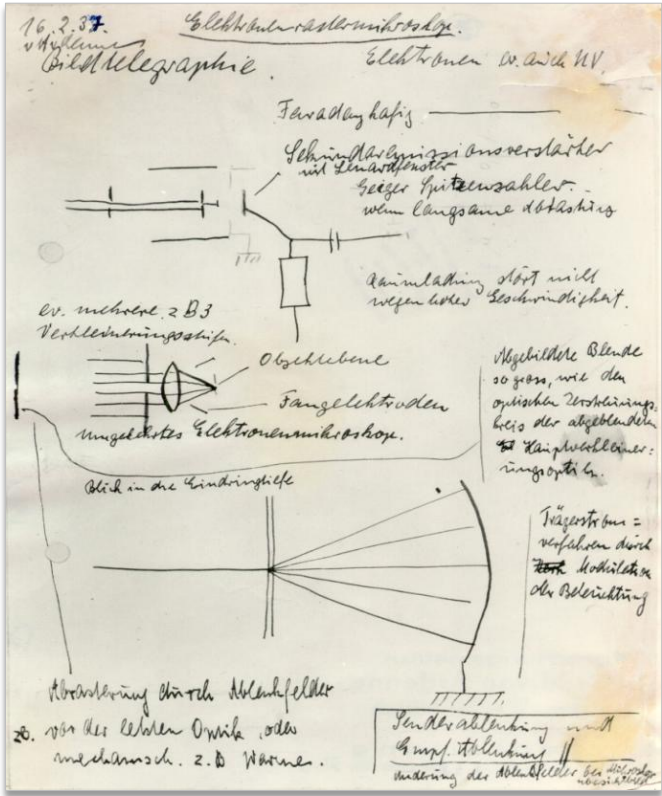 16.2.37
v Ardenne
Elektronenrastermikroskop.
Bildtelegraphie.
Elektronen ev. auch UV.
Faradaykäfig
Sekundäremissionsverstärker
mit Lenardfenster
Geiger Spitzenzähler.
wenn langsame Abtastung
Raumladung stört nicht
wegen hoher Geschwindigkeit.
ev. mehrere z B 3
Verkleinerungsstufen.
Objektebene
Fangelektroden
umgekehrtes Elektronenmikroskop.
Abgebildete Blende
so gross, wie den
optischen Zerstreuungs
kreis der abgeblendeten
Hauptverkleiner=
ungsoptik.
Blick in die Eindringtiefe
Trägerstrom=
verfahren durch
Modulation
der Beleuchtung
Abrasterung durch Ablenkfelder
vor der letzten Optik, oder
mechanisch. z.B Wärme.
Senderablenkung und
Empf. Ablenkung ||
Änderung der Ablenkfelder bei Mikroskop